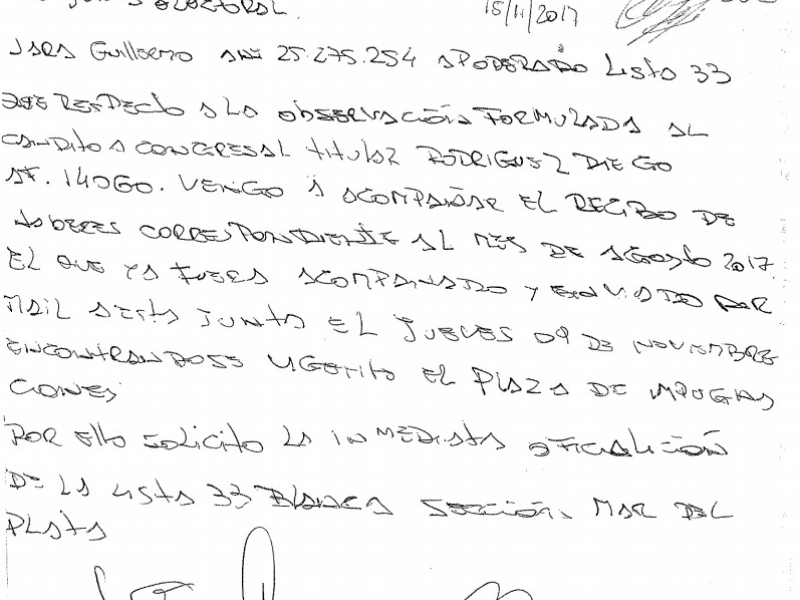 JUNTA ELECTORAL.
15/11/2017
JARA Guillermo DNI 25.275.254 APODERADO Lista 33
QUE RESPECTO A LA OBSERVACIÓN FORMULADA AL
CANDITO A CONGRESAL TITULAR RODRIGUEZ DIEGO
AF. 14060. VENGO A ACOMPAÑAR EL RECIBO DE
HABERES CORRESPONDIENTE AL MES DE AGOSTO 2017.
EL QUE YA FUERA ACOMPAÑADO Y ENVIADO POR
MAIL A ESTA JUNTA EL JUEVES 09 DE NOVIEMBRE
ENCONTRANDOSE VIGENTE EL PLAZO DE IMPUGNA
CIONES
POR Ello SOLICITO LA INMEDIATA OFICIALICIÓN
DE LA LISTA 33 BLANCA SECCIÓN MAR DEL
PLATA